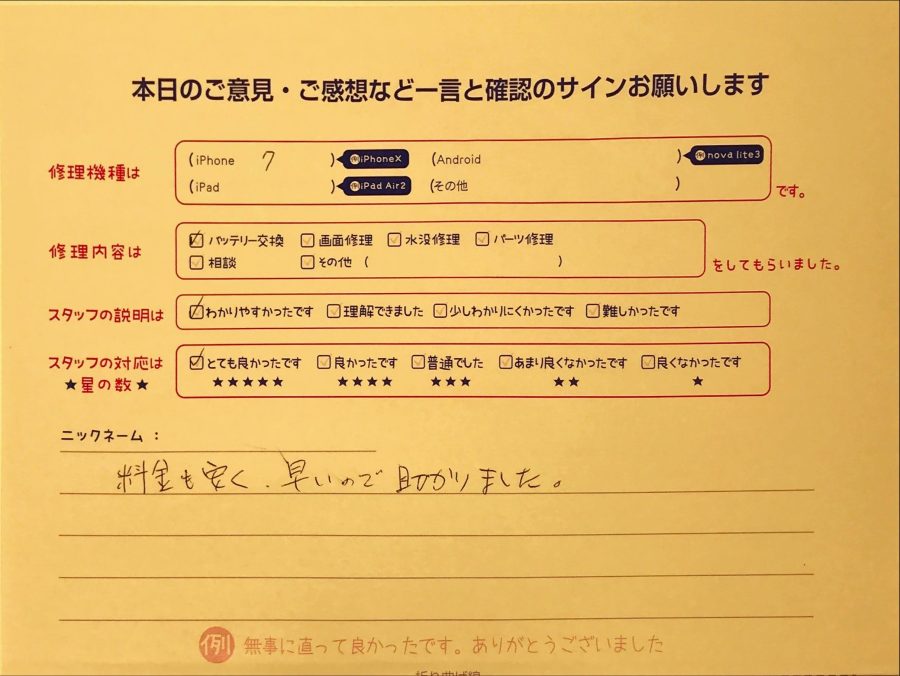 本日のご意見・ご感想など一言と確認のサインお願いします
修理機種は (iPhone 7 ) 例iPhoneX (Android ) 例nova lite3
(iPad ) 例iPad Air2 (その他 ) です。
修理内容は ☑バッテリー交換 □画面修理 □水没修理 □パーツ修理
□相談 □その他 ( ) をしてもらいました。
スタッフの説明は ☑わかりやすかったです □理解できました □少しわかりにくかったです □難しかったです
スタッフの対応は ☑とても良かったです □良かったです □普通でした □あまり良くなかったです □良くなかったです
★星の数★ ★★★★★ ★★★★ ★★★ ★★ ★
ニックネーム：
料金も安く、早いので助かりました。
例 無事に直って良かったです。ありがとうございました